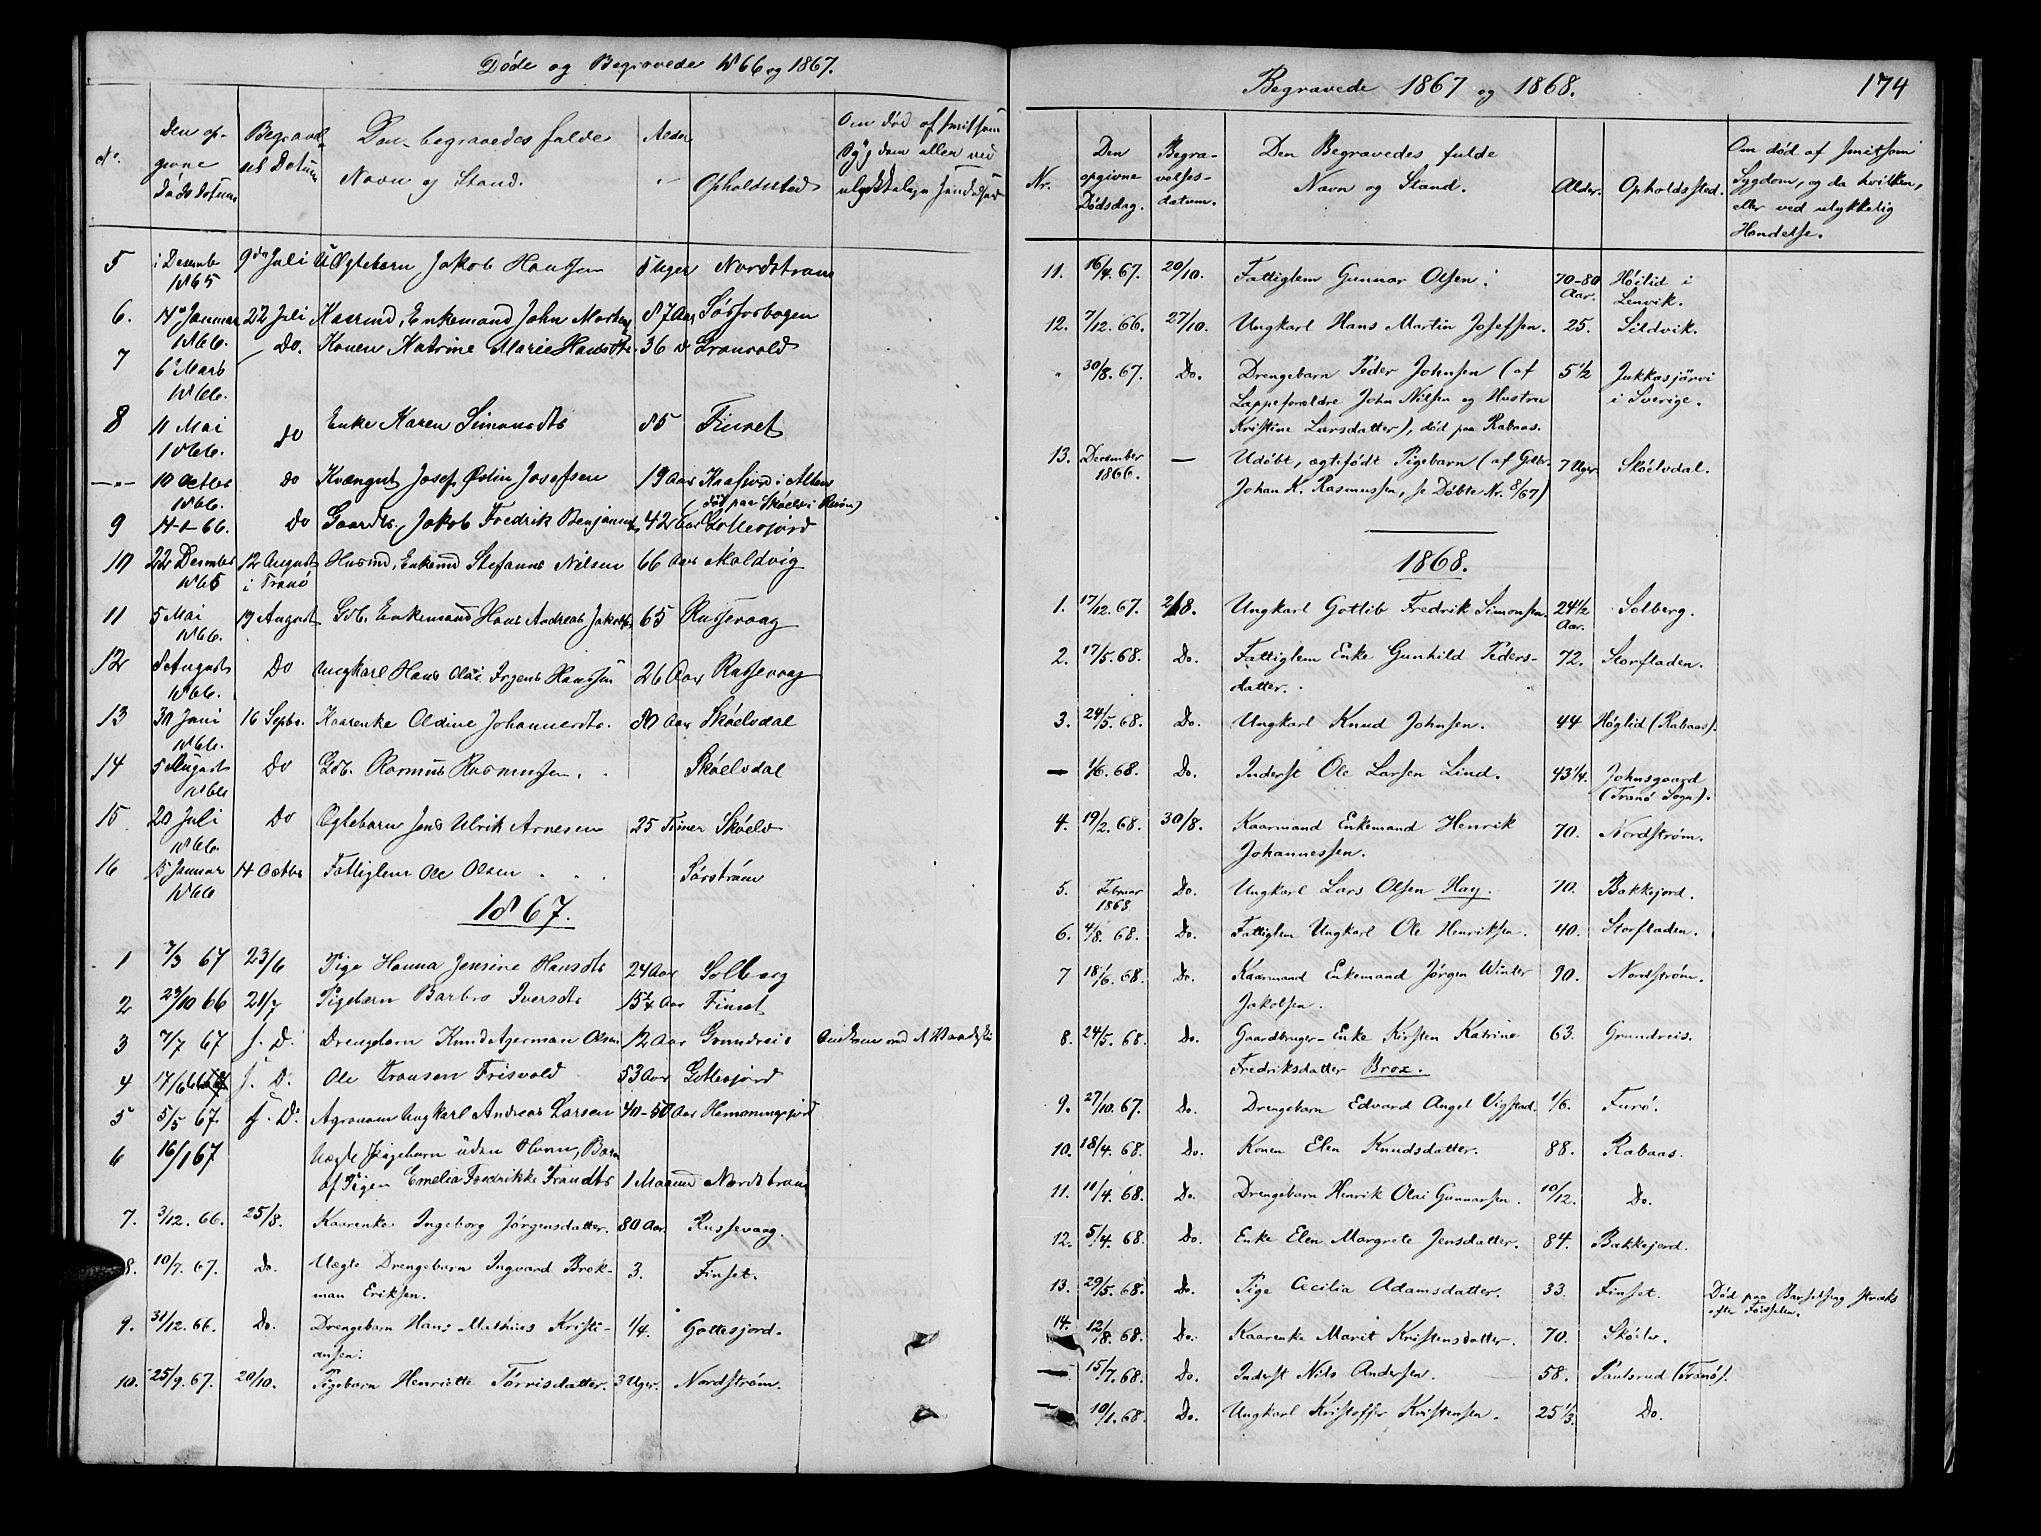 Døde og Begravede 1866 og 1867.
No.
Den op-
givne
Døds Datum
Begravel-
ses Datum
Den begravedes fulde
Navn og Stand.
Alder
Opholdssted
Om død af smitsom
Sygdom eller ved
ulykkelige Hændelser
5 i Decemb 1865 9de Juli Uægtebarn Jakob Hansen 8 Uger Nordstrøm
6. 14 Januar 1866. 22 Juli Kaarmd. Enkemand John Morten 87 Aar Sørforbogen
7 6 Marts 1866. Do. Konen Katrine Marie Hansdtr 36 Granvold
8 11 Mai 1866. do Enke Karen Simonsdtr 85 Finset
—"— 10 Octbr 1866. do Kvængut Josef Østin Josefsen 19 Aar Kaafjord i Alten
(død paa Skøelv i Reisen)
9 14-1-66. Do Gaardbr. Jakob Fredrik Benjamins 42 Aar Gottesjord
10 22 Decmber 1865 12 August i Tranø Husmd. Enkemd Stefanus Nilsen 66 Aar Moldvig
11 5 Mai 1866. 19 August Gdb. Enkemand Hans Andreas Jakobs 65 Russevaag
12 8 August 1866. Do Ungkarl Hans Olai Jrgens Hanssen 26 Aar Russevaag
13 30 Juni 1866. 16 Septbr. Kaarenke Oldine Johannesdtr. 80 Aar Skøelvdal
14 5 August 1866 Do Gdb. Rasmus Rasmussen. Skøelvdal
15 20 Juli 1866. Do Ægtebarn Jens Ulrik Arnesen 25 Timer Skøelv
16 5 Januar 1866 14 Octbr Fattiglem Ole Olsen Sørstrøm
1867.
1 7/3 67 23/6 Pige Hanna Jensine Hansdtr 24 Aar Solberg
2 23/10 66 21/7 Pigebarn Barbro Iversdtr 15 1/4 Aar Finset
3 7/7 67 s. D. Drengebarn Knud Agerman Olsen 12 Aar Grundreis
4 17/6 66 s. D. Ole Fransen Frisvold 53 Aar Gottesjord
5 5/5 67 s. D. Agronom Ungkarl Andreas Larsen 40-50 Aar Hemmingsjord
6 16/1 67 Uægte Pigebarn uden Navn, Barn
af Pigen Emelia Fredrikke Trondtr 1 Maaned Nordstrøm
7. 3/12. 66. 25/8. Kaarenke Ingeborg Jørgensdatter. 80 Aar. Russevaag.
8. 10/7. 67. Do. Uægte Drengebarn Ingvard Brok-
man Eriksen. 3. Finset.
9. 31/12. 66. Do. Drengebarn Hans Mathias Kristi-
ansen. 1/4. Gottesjord.
10. 25/9. 67. 20/10. Pigebarn Henriette Tørrisdatter. 3 Uger. Nordstrøm.
Begravede 1867 og 1868.
174
Nr.
Den
opgivne
Dødsdag.
Begra-
velses-
datum.
Den Begravedes fulde
Navn og Stand.
Alder.
Opholdssted.
Om død af smitsom
Sygdom, og da hvilken,
eller ved ulykkelig
Hændelse.
11. 16/4. 67. 20/10. Fattiglem Gunnar Olsen. 70-80 Aar. Høilid i
Lenvik.
12. 7/12. 66. 27/10. Ungkarl Hans Martin Josefsen. 25. Sildvik.
" 30/8. 67. Do. Drengebarn Peder Johnsen (af 5 1/2 Jukkasjärvi
Lappeforældre John Nilsen og Hustru i Sverige.
Kristine Larsdatter), død paa Rabaas.
13. December 1866. — Udøbt, ægtefødt Pigebarn (af Gdbr. 7 Uger. Skøelvdal.
Johan K. Rasmussen, se Døbte Nr. 8/67)
1868.
1. 17/12. 67. 2/8. Ungkarl Gottlib Fredrik Simonsen. 24 1/2 Aar. Solberg.
2. 17/5. 68. Do. Fattiglem Enke Gunhild Peders-
datter. 72. Storfladen.
3. 24/5. 68. Do. Ungkarl Knud Johnsen. 44 Høglid (Rabaas).
— 1/6. 68. Do. Inderst Ole Larsen Lind. 43 1/4. Johnsgaard
(Tranø Sogn).
4. 19/2. 68. 30/8. Kaarmand Enkemand Henrik
Johannessen. 70. Nordstrøm.
5. Februar 1868 Do. Ungkarl Lars Olsen Hay. 70. Bakkejord.
6. 4/8. 68. Do. Fattiglem Ungkarl Ole Henriksen. 40. Storfladen.
7 18/6. 68. Do. Kaarmand Enkemand Jørgen Winter
Jakobsen. 90. Nordstrøm.
8. 24/5. 68. Do. Gaardbruger-Enke Kirsten Katrine 63. Grundreis.
Fredriksdatter Brox.
9. 27/10. 67. Do. Drengebarn Edvard Angel Vigstad. 1/6. Furø.
10. 18/4. 68. Do. Konen Elen Knudsdatter. 88. Rabaas.
11. 11/4. 68. Do. Drengebarn Henrik Olai Gunnarsen. 10/12. Do.
12. 5/4. 68. Do. Enke Elen Margrete Jensdatter. 84. Bakkejord.
13. 29/5. 68. Do. Pige Cecilia Adamsdatter. 33. Finset. Død paa Barselseng straks
efter Fødselen.
14. 12/8. 68. Do. Kaarenke Marit Kristensdatter. 70. Skøelv.
— 15/7. 68. Do. Inderst Nils Andersen. 58. Paulsrud (Tranø).
— 10/1. 68. Do. Ungkarl Kristoffer Kristensen. 25 1/3. Do.